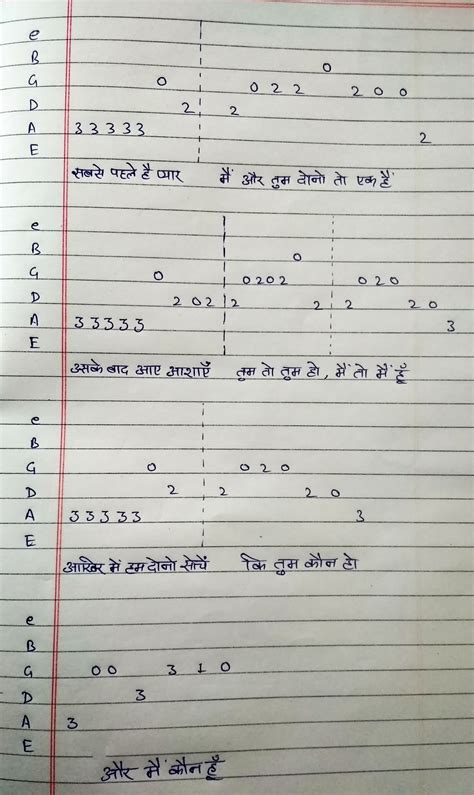 e
B 0
G 0 0 2 2 2 0 0
D 2 2
A 3 3 3 3 3 2
E
सबसे पहले है प्यार मैं और तुम दोनो तो एक हैं
e
B 0
G 0 0 2 0 2 0 2 0
D 2 2 0 2 2 2 2 2 0
A 3 3 3 3 3 3
E
उसके बाद आए आशाएँ तुम तो तुम हो, मैं तो मैं हूँ
e
B
G 0 0 2 0
D 2 2 2 0
A 3 3 3 3 3 3
E
आखिर में हम दोनो सोचें कि तुम कौन हो
e
B
G 0 0 3 1 0
D 3
A 3
E
और मैं कौन हूँ